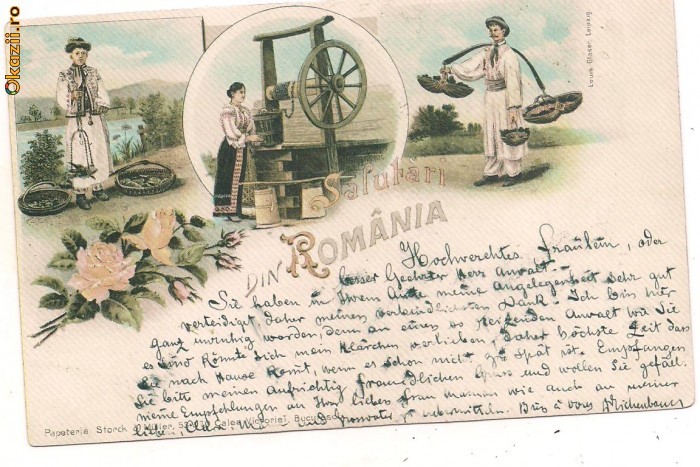 Okazii.ro
Louis Glaser Leipzig
Salutări
DIN ROMÂNIA
Hochverehrtes Fräulein, oder
besser Geehrter Herz Anwalt.
Sie haben in Ihrem Amte meine Angelegenheit sehr gut
verteidigt daher meinen verbindlichsten Dank. Ich bin hier
ganz unruhig worden, denn an einen so reizenden Anwalt wie Sie
es sind könnte sich mein Klärchen verlieben, daher höchste Zeit dass
sie nach Hause kommt, wenn es schon nicht zu spät ist. Empfangen
Sie bitte meinen aufrichtig freundlichen Gruss und wollen Sie gefäll.
meine Empfehlungen an Ihre liebes Frau Maman wie auch an meiner
lieben Clara, und zu übermitteln.
Papeteria Storck & Müller, Calea Victoriei, Bucuresci